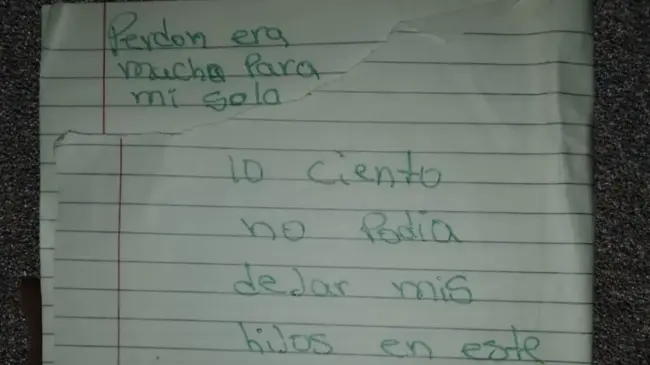 Perdon era
mucho para
mi sola
lo ciento
no podia
dejar mis
hijos en este